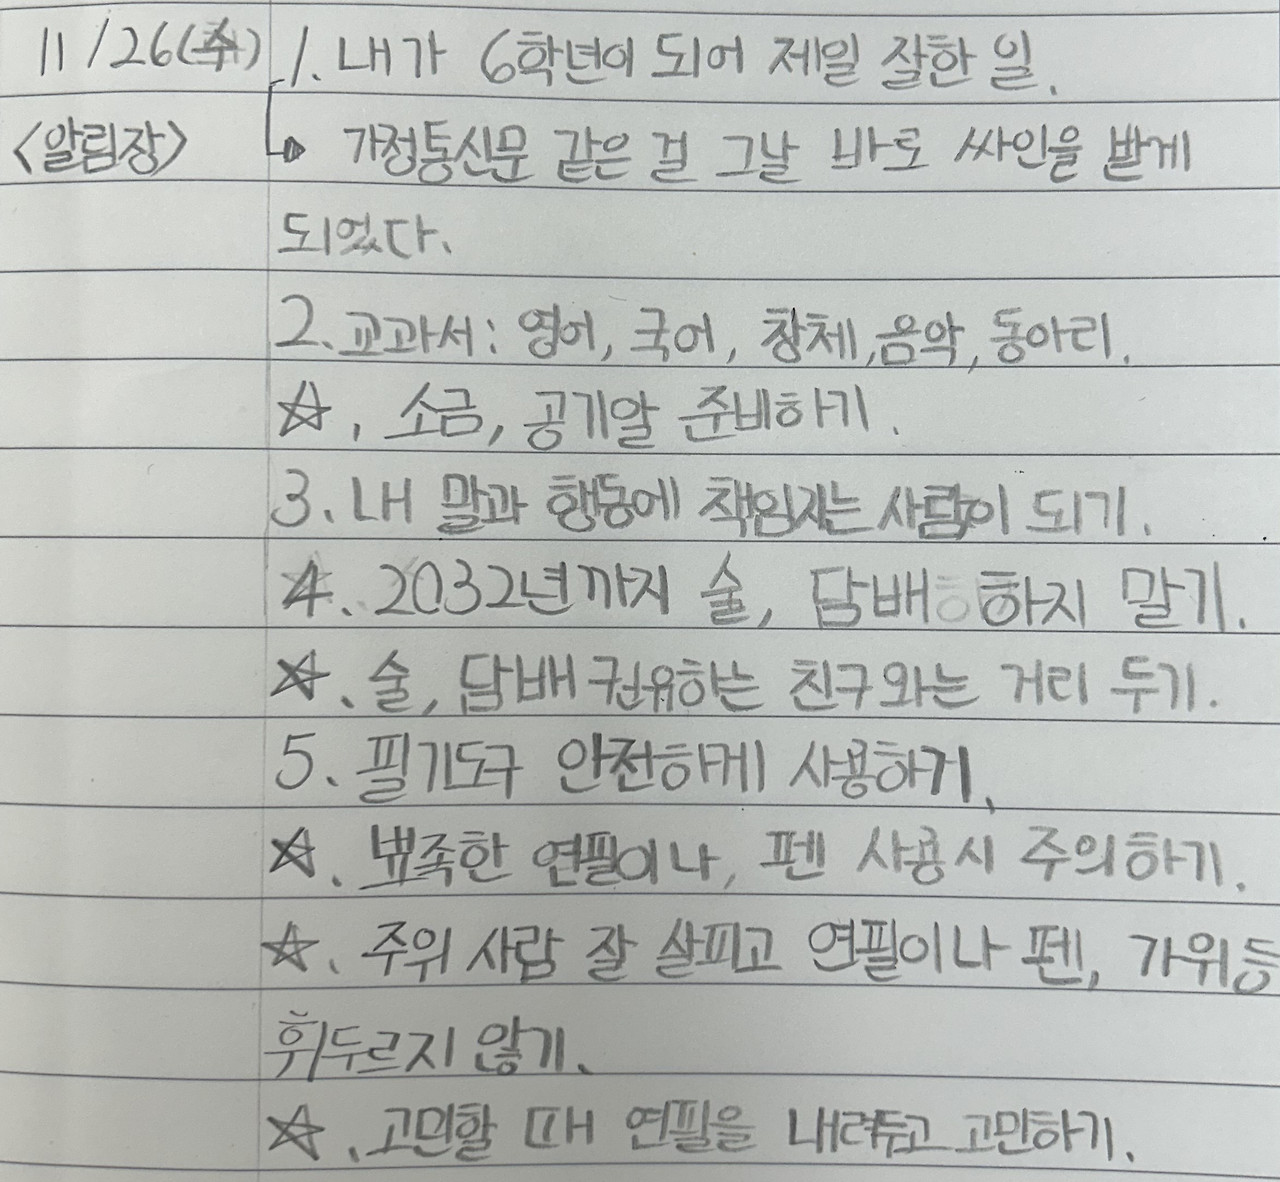 11/26(수) 1. 내가 6학년이 되어 제일 잘한 일.
<알림장> 가정통신문 같은 걸 그날 바로 싸인을 받게
되었다.
2. 교과서: 영어, 국어, 창체, 음악, 동아리.
☆, 소금, 공기알 준비하기.
3. 내 말과 행동에 책임지는 사람이 되기.
4. 2032년까지 술, 담배 하지 말기.
☆. 술, 담배 권유하는 친구와는 거리 두기.
5. 필기도구 안전하게 사용하기.
☆. 뾰족한 연필이나, 펜 사용시 주의하기.
☆. 주위 사람 잘 살피고 연필이나 펜, 가위등
휘두르지 않기.
☆. 고민할 때 연필을 내려두고 고민하기.